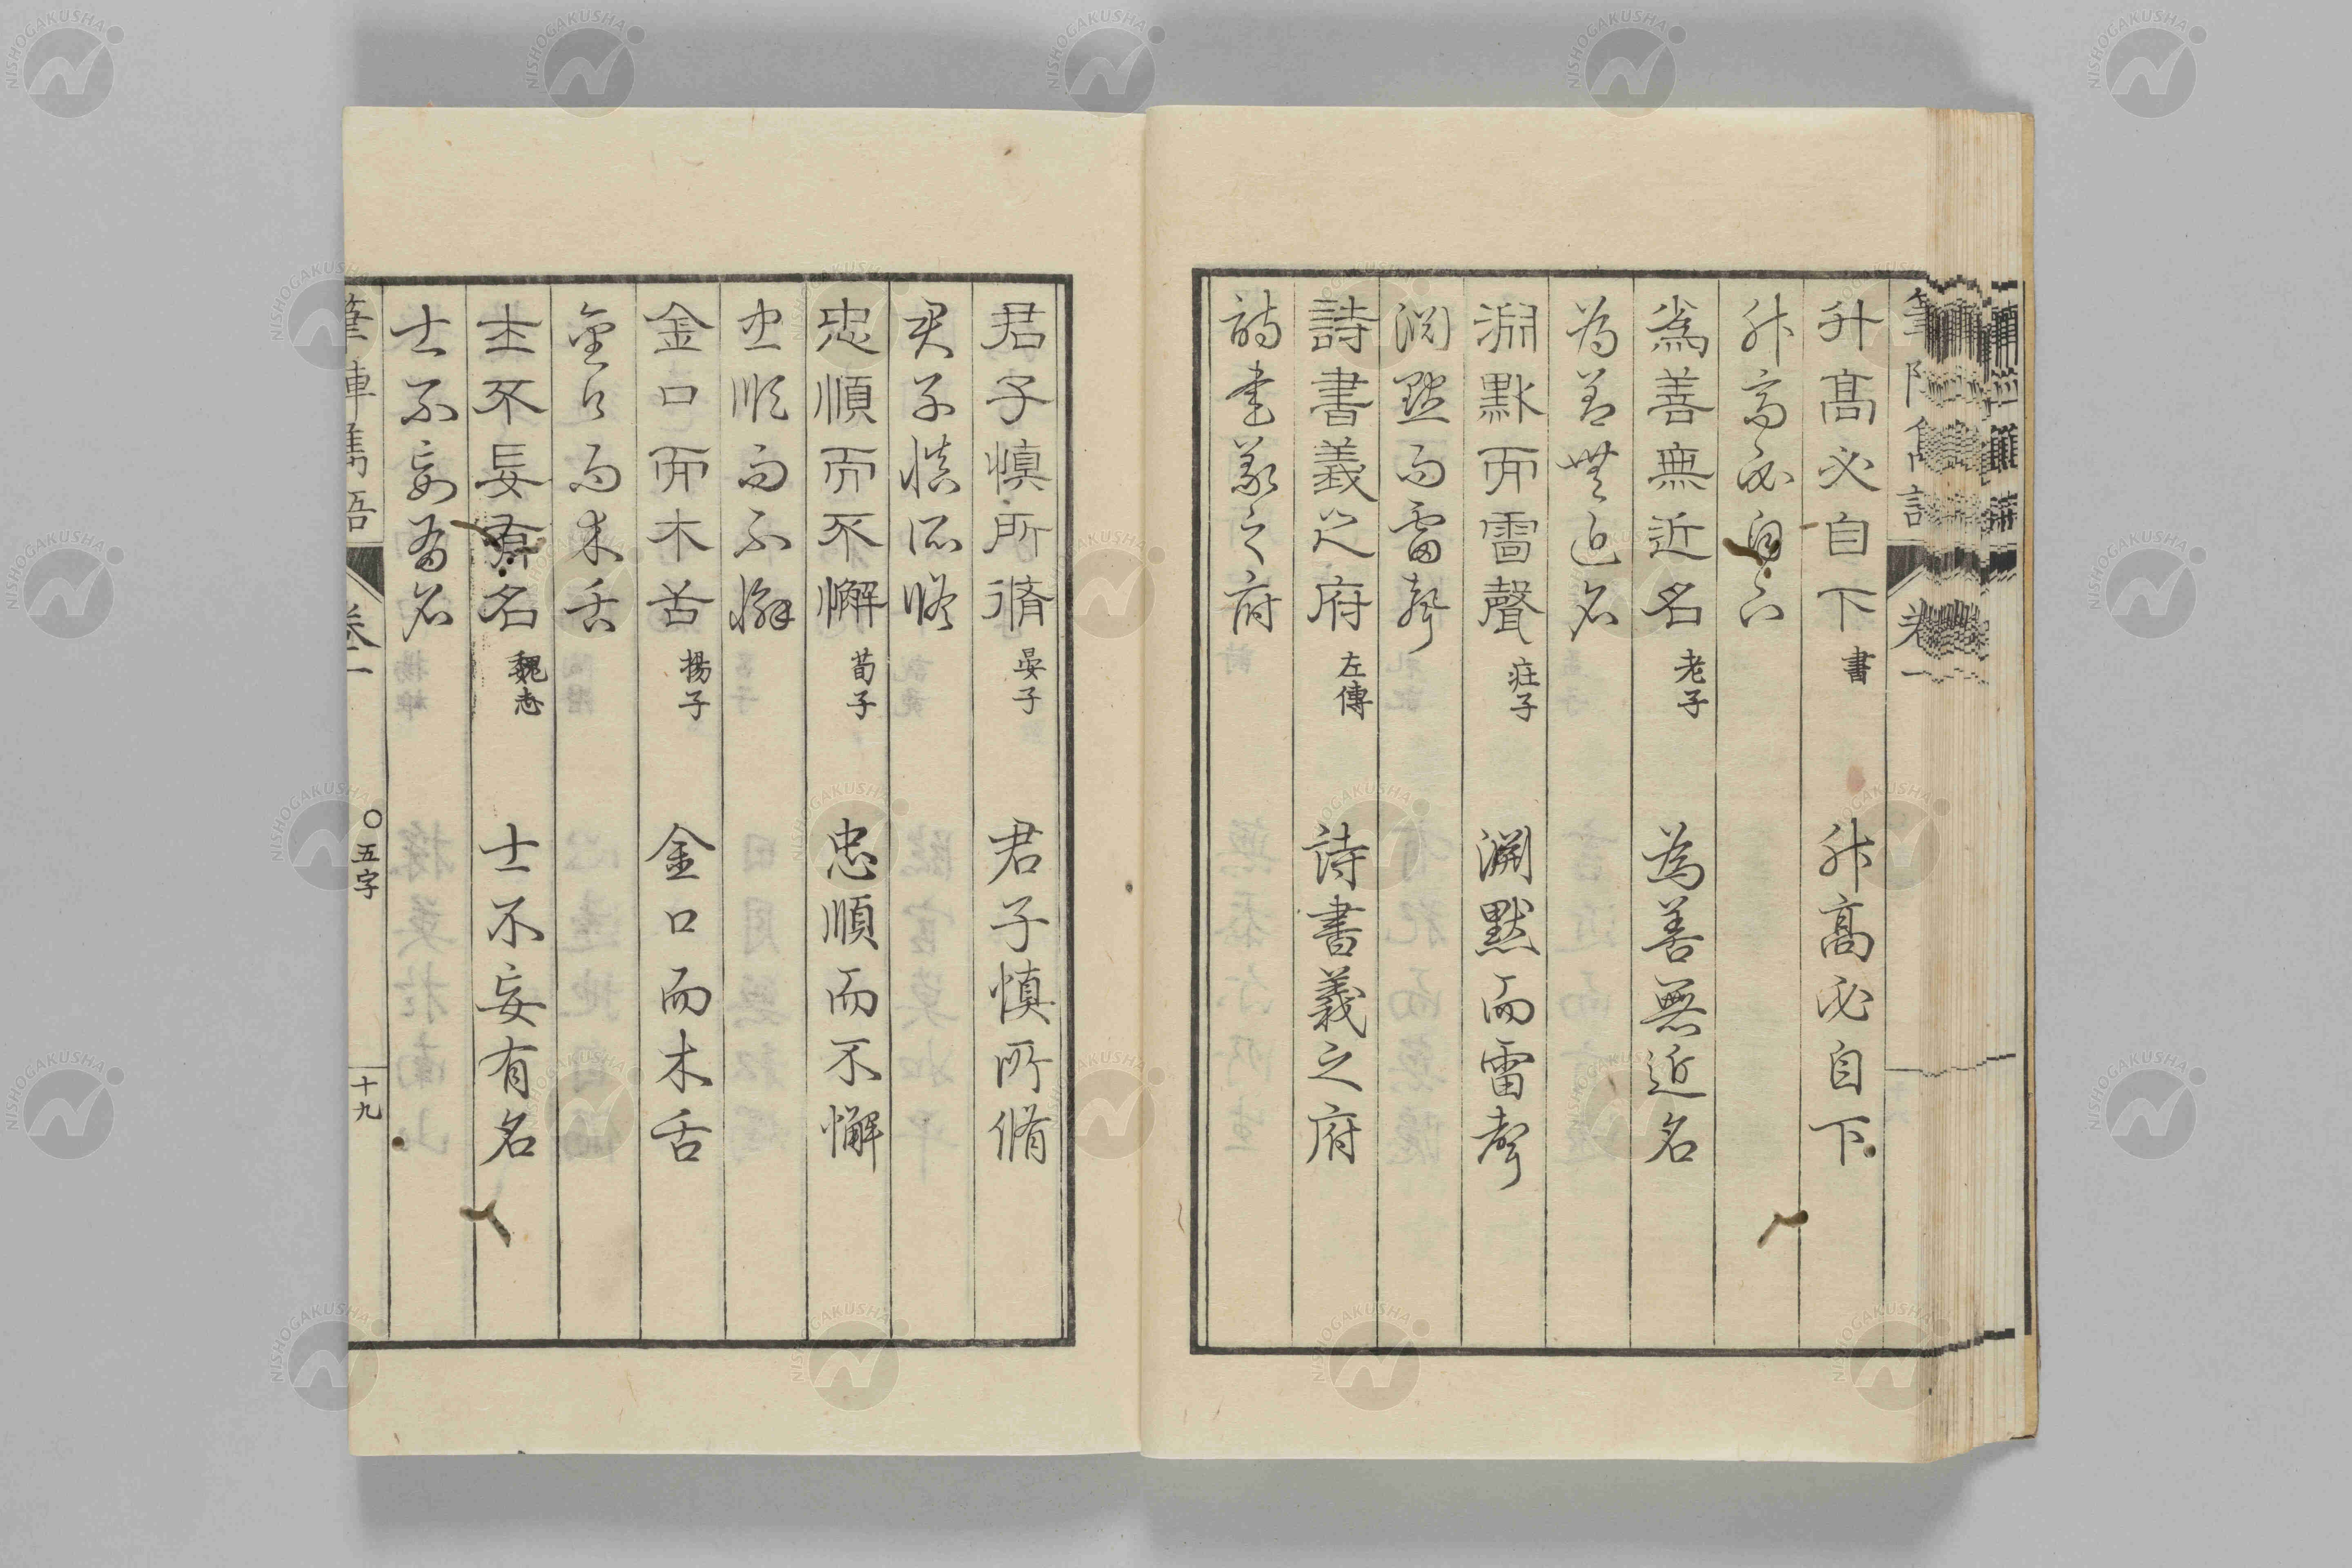 升高必自下 書 升高必自下
升高必自下
為善無近名 老子 為善無近名
為善無近名
淵默而雷聲 荘子 淵默而雷聲
淵默而雷聲
詩書義之府 左傳 詩書義之府
詩書義之府
君子慎所脩 晏子 君子慎所脩
君子慎所脩
忠順而不懈 荀子 忠順而不懈
忠順而不懈
金口而木舌 揚子 金口而木舌
金口而木舌
士不妄有名 魏志 士不妄有名
士不妄有名
筆陣雋語 卷一 〇五字 十九
NISHOGAKUSHA